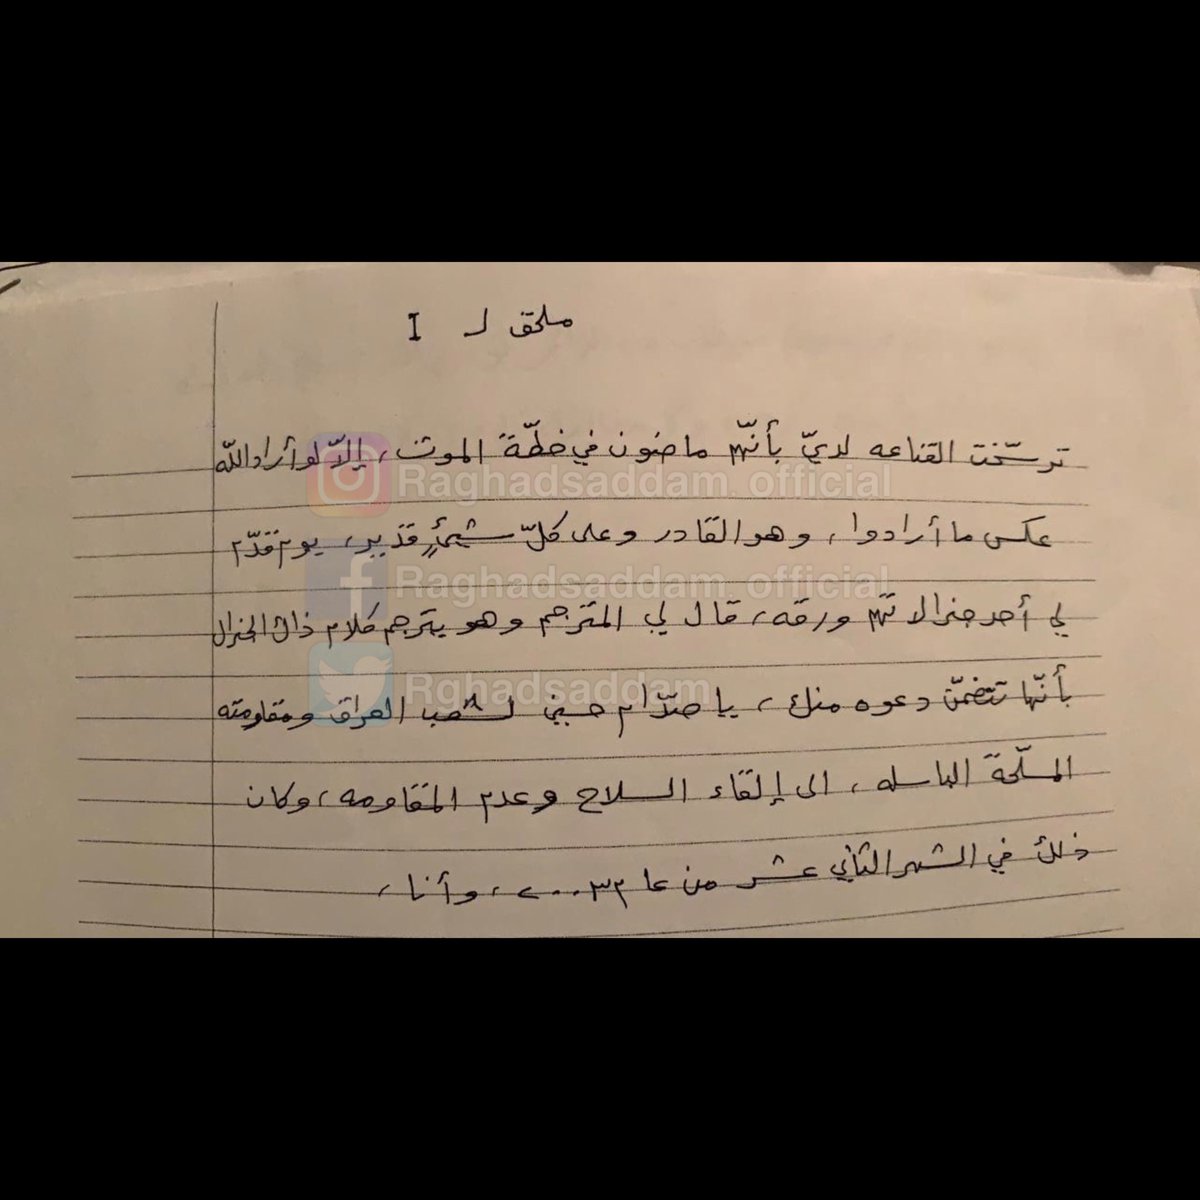 ملحق لـ I
ترسّخت القناعه لديّ بأنّهم ماضون في خطّة الموت، إلاّ لو أراد الله
Raghadsaddam_official
عكس ما أرادوا، وهو القادر وعلى كلّ شيئٍ قدير، يوم قدّم
Raghadsaddam_official
لي أحد جنرالاتهم ورقه، قال لي المترجم وهو يترجم كلام ذاك الجنرال
بأنّها تتضمّن دعوه منك، يا صدّام حسين لشعب العراق ومقاومته
Rghadsaddam
المسلّحة الباسله، الى إلقاء السلاح وعدم المقاومه، وكان
ذلك في الشهر الثاني عشر من عام ٢٠٠٣، وأنا،